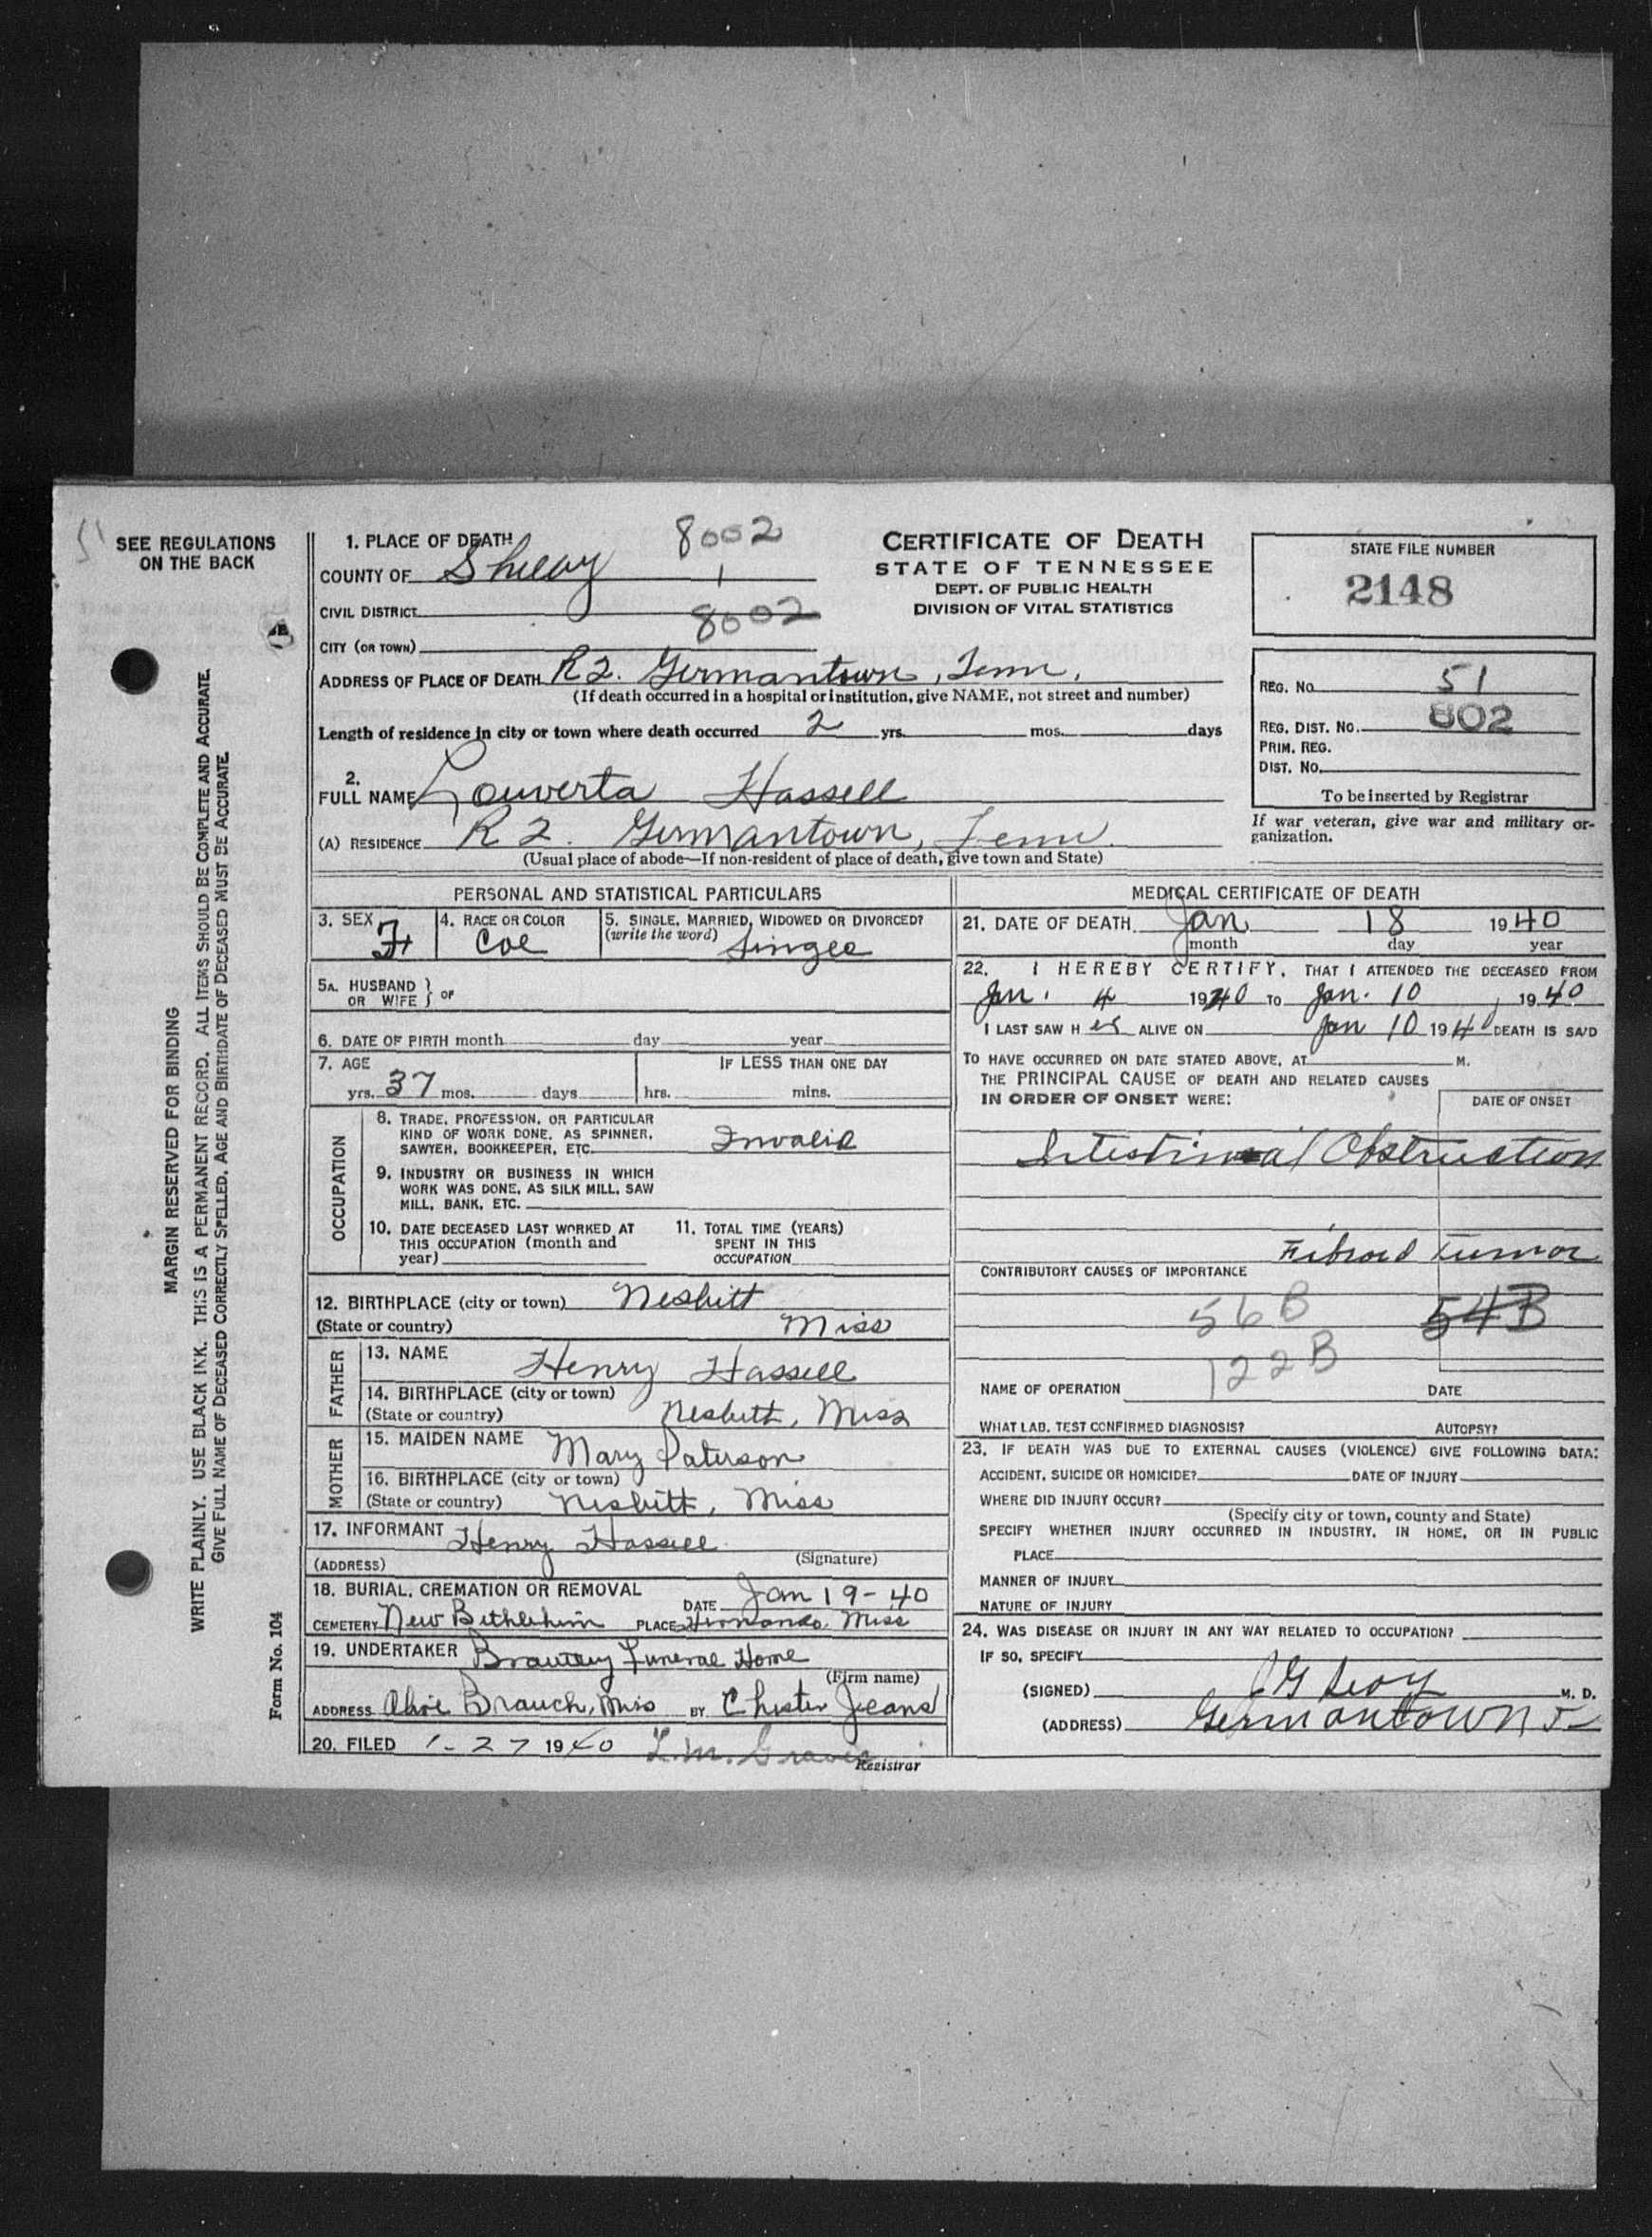 SEE REGULATIONS
ON THE BACK
MARGIN RESERVED FOR BINDING
WRITE PLAINLY. USE BLACK INK. THIS IS A PERMANENT RECORD. ALL ITEMS SHOULD BE COMPLETE AND ACCURATE.
GIVE FULL NAME OF DECEASED CORRECTLY SPELLED. AGE AND BIRTHDATE OF DECEASED MUST BE ACCURATE.
Form No. 104
CERTIFICATE OF DEATH
STATE OF TENNESSEE
DEPT. OF PUBLIC HEALTH
DIVISION OF VITAL STATISTICS
STATE FILE NUMBER
2148
REG. NO. 51
REG. DIST. NO. 802
PRIM. REG.
DIST. NO.
To be inserted by Registrar
If war veteran, give war and military or-
ganization.
1. PLACE OF DEATH 8002
COUNTY OF Shelby 1
CIVIL DISTRICT 8002
CITY (OR TOWN)
ADDRESS OF PLACE OF DEATH R2. Germantown, Tenn.
(If death occurred in a hospital or institution, give NAME, not street and number)
Length of residence in city or town where death occurred 2 yrs. mos. days
2.
FULL NAME Louverta Hassell
(A) RESIDENCE R 2. Germantown, Tenn.
(Usual place of abode—If non-resident of place of death, give town and State)
PERSONAL AND STATISTICAL PARTICULARS
3. SEX F 4. RACE OR COLOR Col 5. SINGLE, MARRIED, WIDOWED OR DIVORCED?
(write the word) Single
5A. HUSBAND
OR WIFE } OF
6. DATE OF BIRTH month day year
7. AGE IF LESS THAN ONE DAY
yrs. 37 mos. days hrs. mins.
OCCUPATION
8. TRADE, PROFESSION, OR PARTICULAR
KIND OF WORK DONE, AS SPINNER,
SAWYER, BOOKKEEPER, ETC. Invalid
9. INDUSTRY OR BUSINESS IN WHICH
WORK WAS DONE, AS SILK MILL, SAW
MILL, BANK, ETC.
10. DATE DECEASED LAST WORKED AT
THIS OCCUPATION (month and
year)
11. TOTAL TIME (YEARS)
SPENT IN THIS
OCCUPATION
12. BIRTHPLACE (city or town) Nesbitt
(State or country) Miss
FATHER
13. NAME Henry Hassell
14. BIRTHPLACE (city or town)
(State or country) Nesbitt, Miss
MOTHER
15. MAIDEN NAME Mary Paterson
16. BIRTHPLACE (city or town)
(State or country) Nesbitt, Miss
17. INFORMANT Henry Hassell
(ADDRESS) (Signature)
18. BURIAL, CREMATION OR REMOVAL DATE Jan 19-40
CEMETERY New Bethlehim PLACE Hernando, Miss
19. UNDERTAKER Brantley Funeral Home
(Firm name)
ADDRESS Olive Branch, Miss BY Chester Jeans
20. FILED 1-27 1940 L.M. Graves
Registrar
MEDICAL CERTIFICATE OF DEATH
21. DATE OF DEATH Jan 18 1940
month day year
22. I HEREBY CERTIFY, THAT I ATTENDED THE DECEASED FROM
Jan. 4 1940 TO Jan. 10, 1940
I LAST SAW H er ALIVE ON Jan 10 1940 DEATH IS SAID
TO HAVE OCCURRED ON DATE STATED ABOVE, AT M.
THE PRINCIPAL CAUSE OF DEATH AND RELATED CAUSES
IN ORDER OF ONSET WERE: DATE OF ONSET
Intestinal Obstruction
Fibroid Tumor
CONTRIBUTORY CAUSES OF IMPORTANCE
56B 54B
122B
NAME OF OPERATION DATE
WHAT LAB. TEST CONFIRMED DIAGNOSIS? AUTOPSY?
23. IF DEATH WAS DUE TO EXTERNAL CAUSES (VIOLENCE) GIVE FOLLOWING DATA:
ACCIDENT, SUICIDE OR HOMICIDE? DATE OF INJURY
WHERE DID INJURY OCCUR?
(Specify city or town, county and State)
SPECIFY WHETHER INJURY OCCURRED IN INDUSTRY, IN HOME, OR IN PUBLIC
PLACE
MANNER OF INJURY
NATURE OF INJURY
24. WAS DISEASE OR INJURY IN ANY WAY RELATED TO OCCUPATION?
IF SO, SPECIFY
(SIGNED) M. D.
(ADDRESS) Germantown